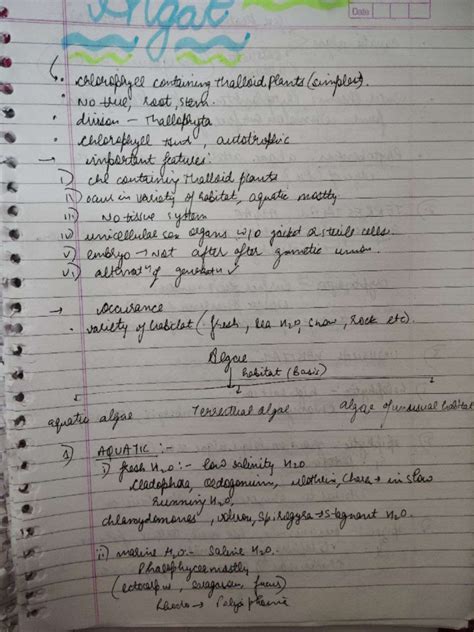 Algae
Date
• Chlorophyll containing Thalloid plants (simplest).
• No true, root, stem.
• divison – Thallophyta
• chlorophyll, autotrophic
→ important features:
i) chl containing Thalloid plants
ii) occur in variety of habitat, aquatic mostly
iii) No tissue system
iv) unicellular sex organs w/o jacket of sterile cells.
v) embryo → not after gametic union
vi) alternatn of generatn ✓
→ Occurance
• variety of habitat (fresh, sea H2O, snow, rock etc).
Algae
habitat (Basis)
aquatic algae Terrestrial algae algae of unusual habitat
1) AQUATIC :-
i) fresh H2O :- low salinity H2O
Cladophora, Oedogonium, Ulothrix, Chara → in slow
running H2O,
chlamydomonas, volvox, Spirogyra → Stagnant H2O.
ii) marine H2O :- Saline H2O.
mostly
(ectocarpus, sargassum, fucus)